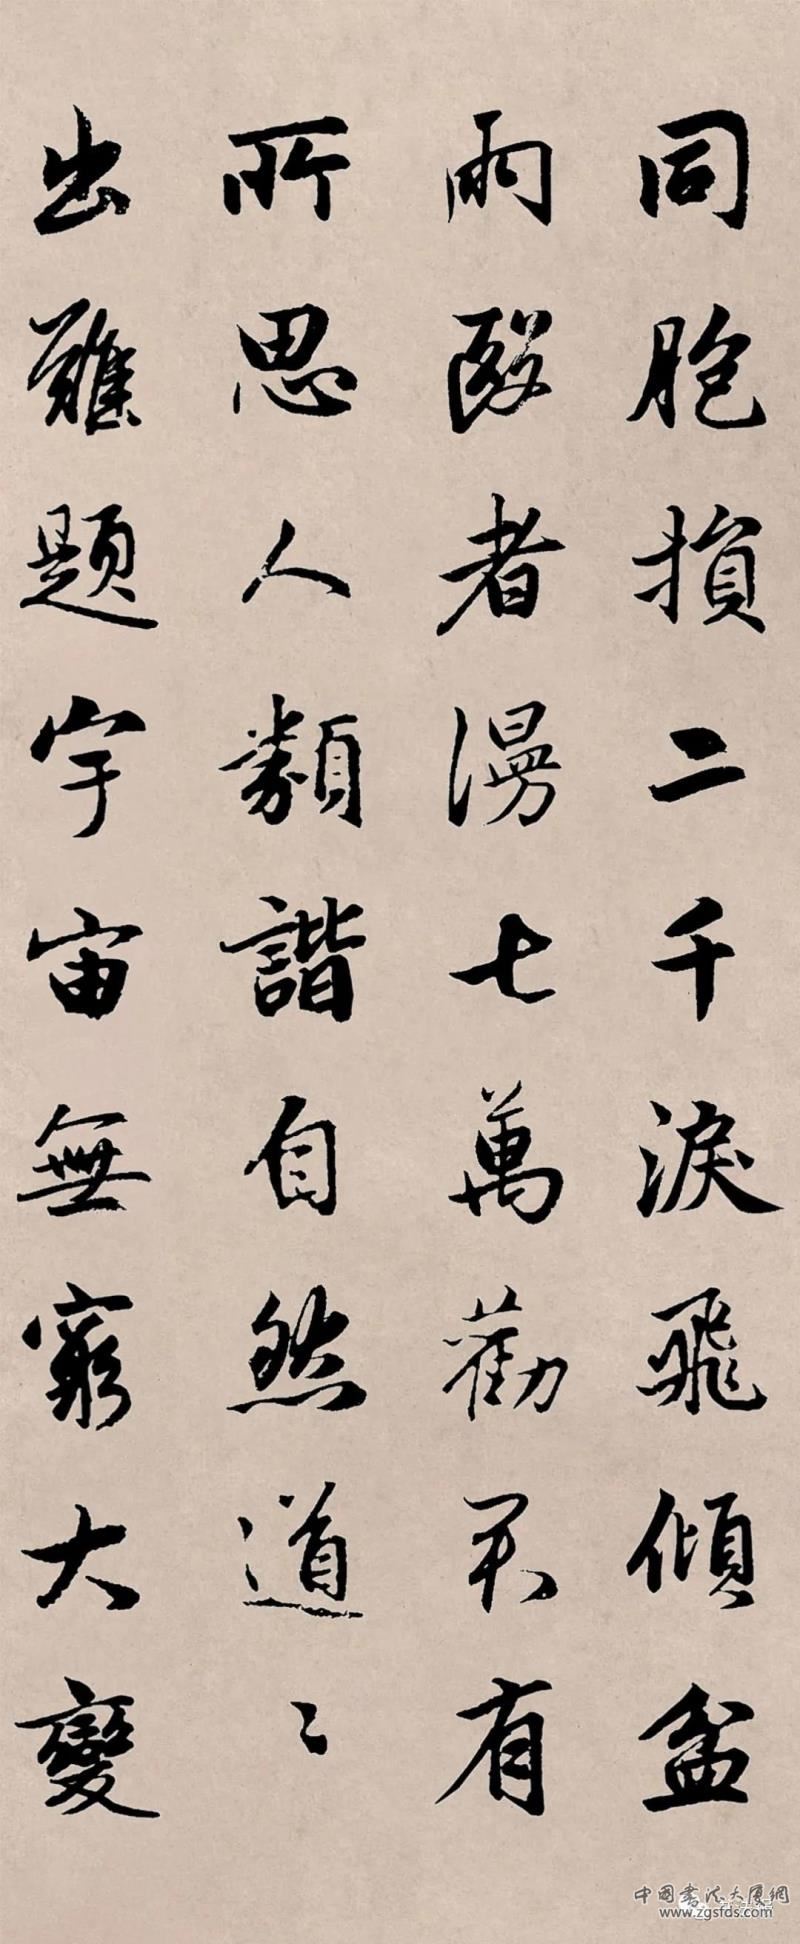 同胞損二千淚飛傾盆
雨者漫七萬勸有
所思人類諧自然道〻
出難題宇宙無窮大變
中國書法大廈網
www.zgsfds.com